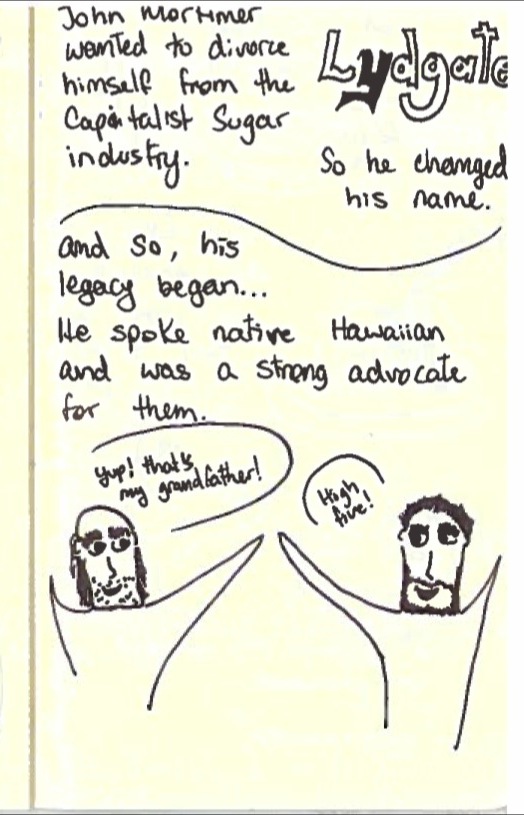 John Mortimer
wanted to divorce
himself from the
Capitalist Sugar
industry.
Lydgate
So he changed
his name.
and so, his
legacy began...
He spoke native Hawaiian
and was a strong advocate
for them.
Yup! that's
my grandfather!
High
five!